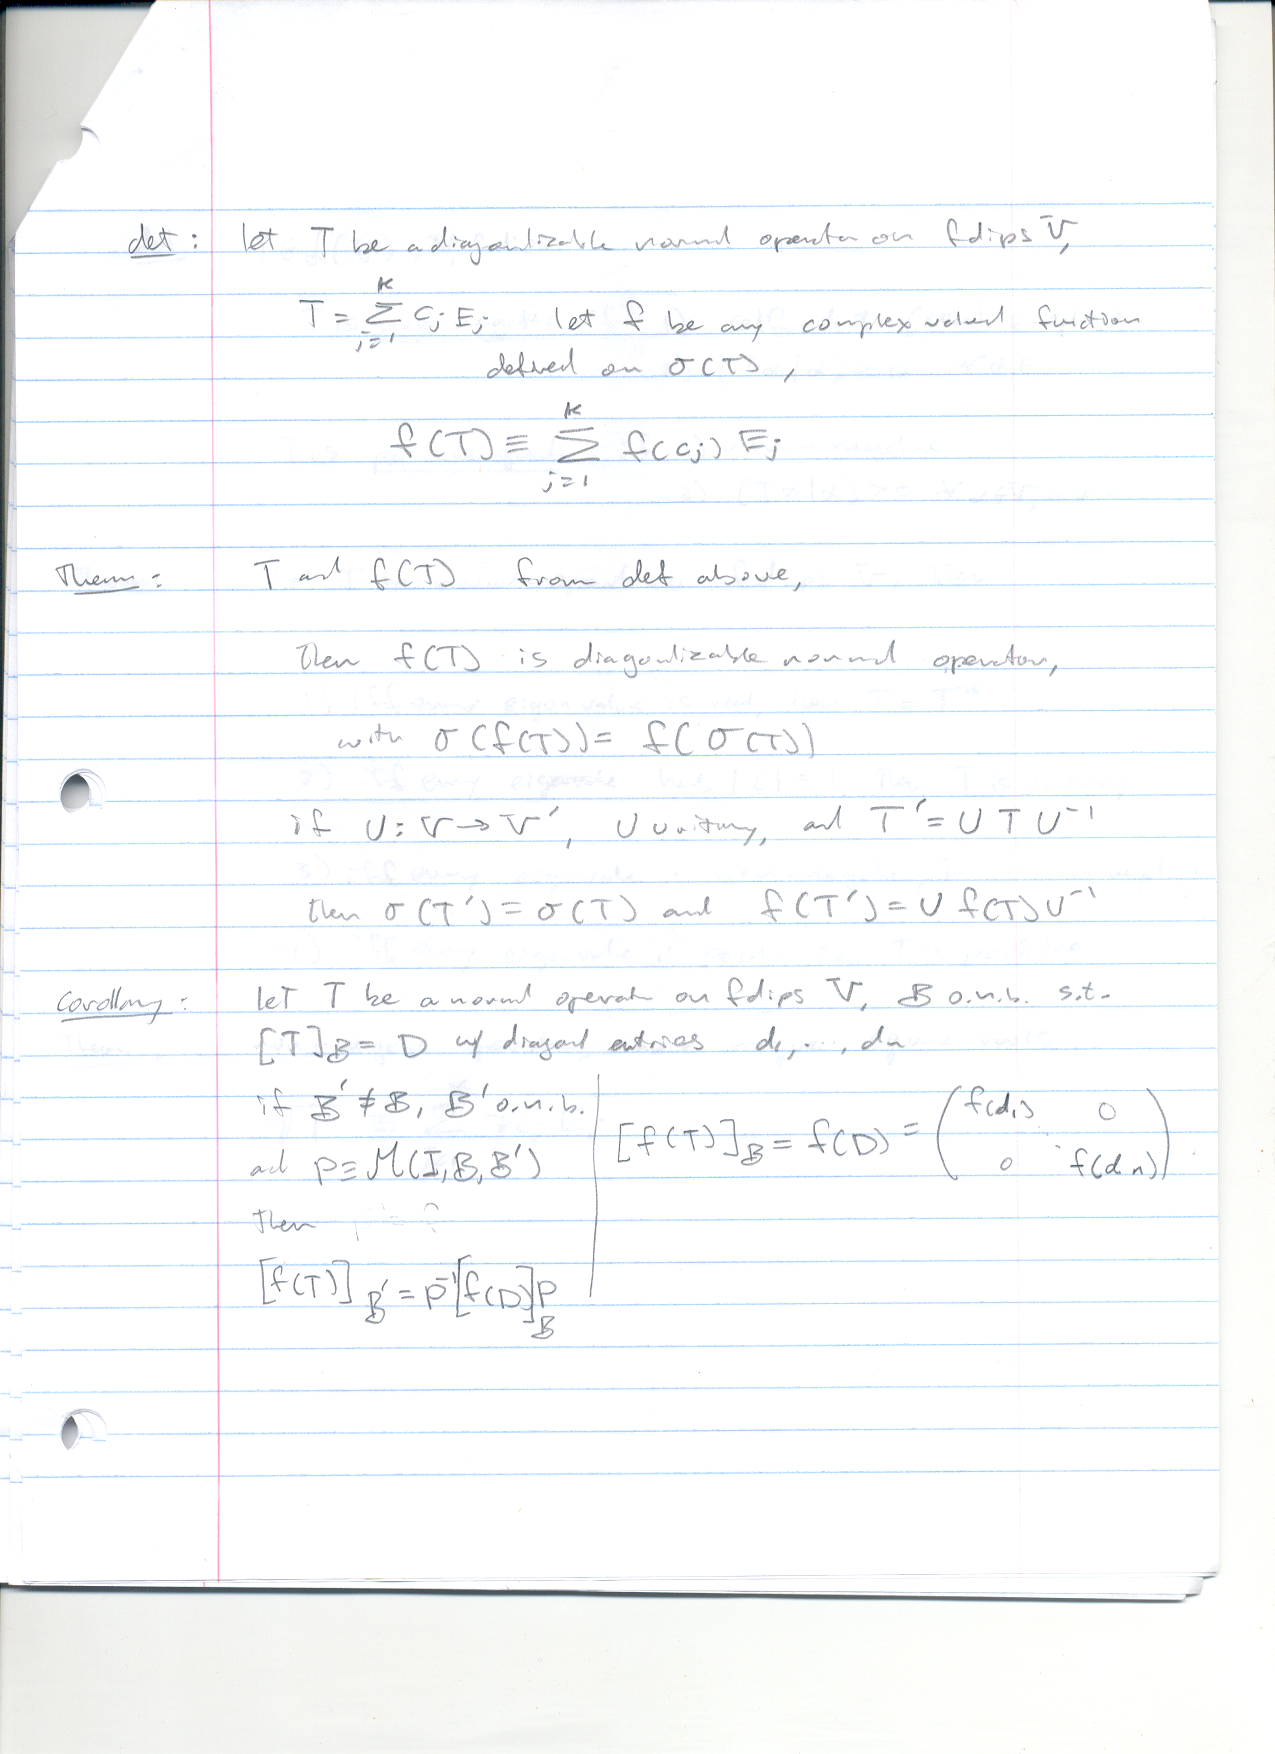 def: let T be a diagonalizable normal operator on fdips V,
T = \sum_{j=1}^{k} c_j E_j let f be any complex valued function
defined on σ(T),
f(T) ≡ \sum_{j=1}^{k} f(c_j) E_j
Them: T and f(T) from def above,
then f(T) is diagonalizable normal operator,
with σ(f(T)) = f(σ(T))
if U: V → V', U unitary, and T' = U T U^{-1}
then σ(T') = σ(T) and f(T') = U f(T) U^{-1}
Corollary: let T be a normal operator on fdips V, B o.n.b. s.t.
[T]_B = D w/ diagonal entries d_1, ..., d_n
if B' ≠ B, B' o.n.b.
and P ≡ M(I, B, B')
then
[f(T)]_{B'} = P^{-1} [f(D)]_B P
[f(T)]_B = f(D) = \begin{pmatrix} f(d_1) & 0 \\ 0 & f(d_n) \end{pmatrix}